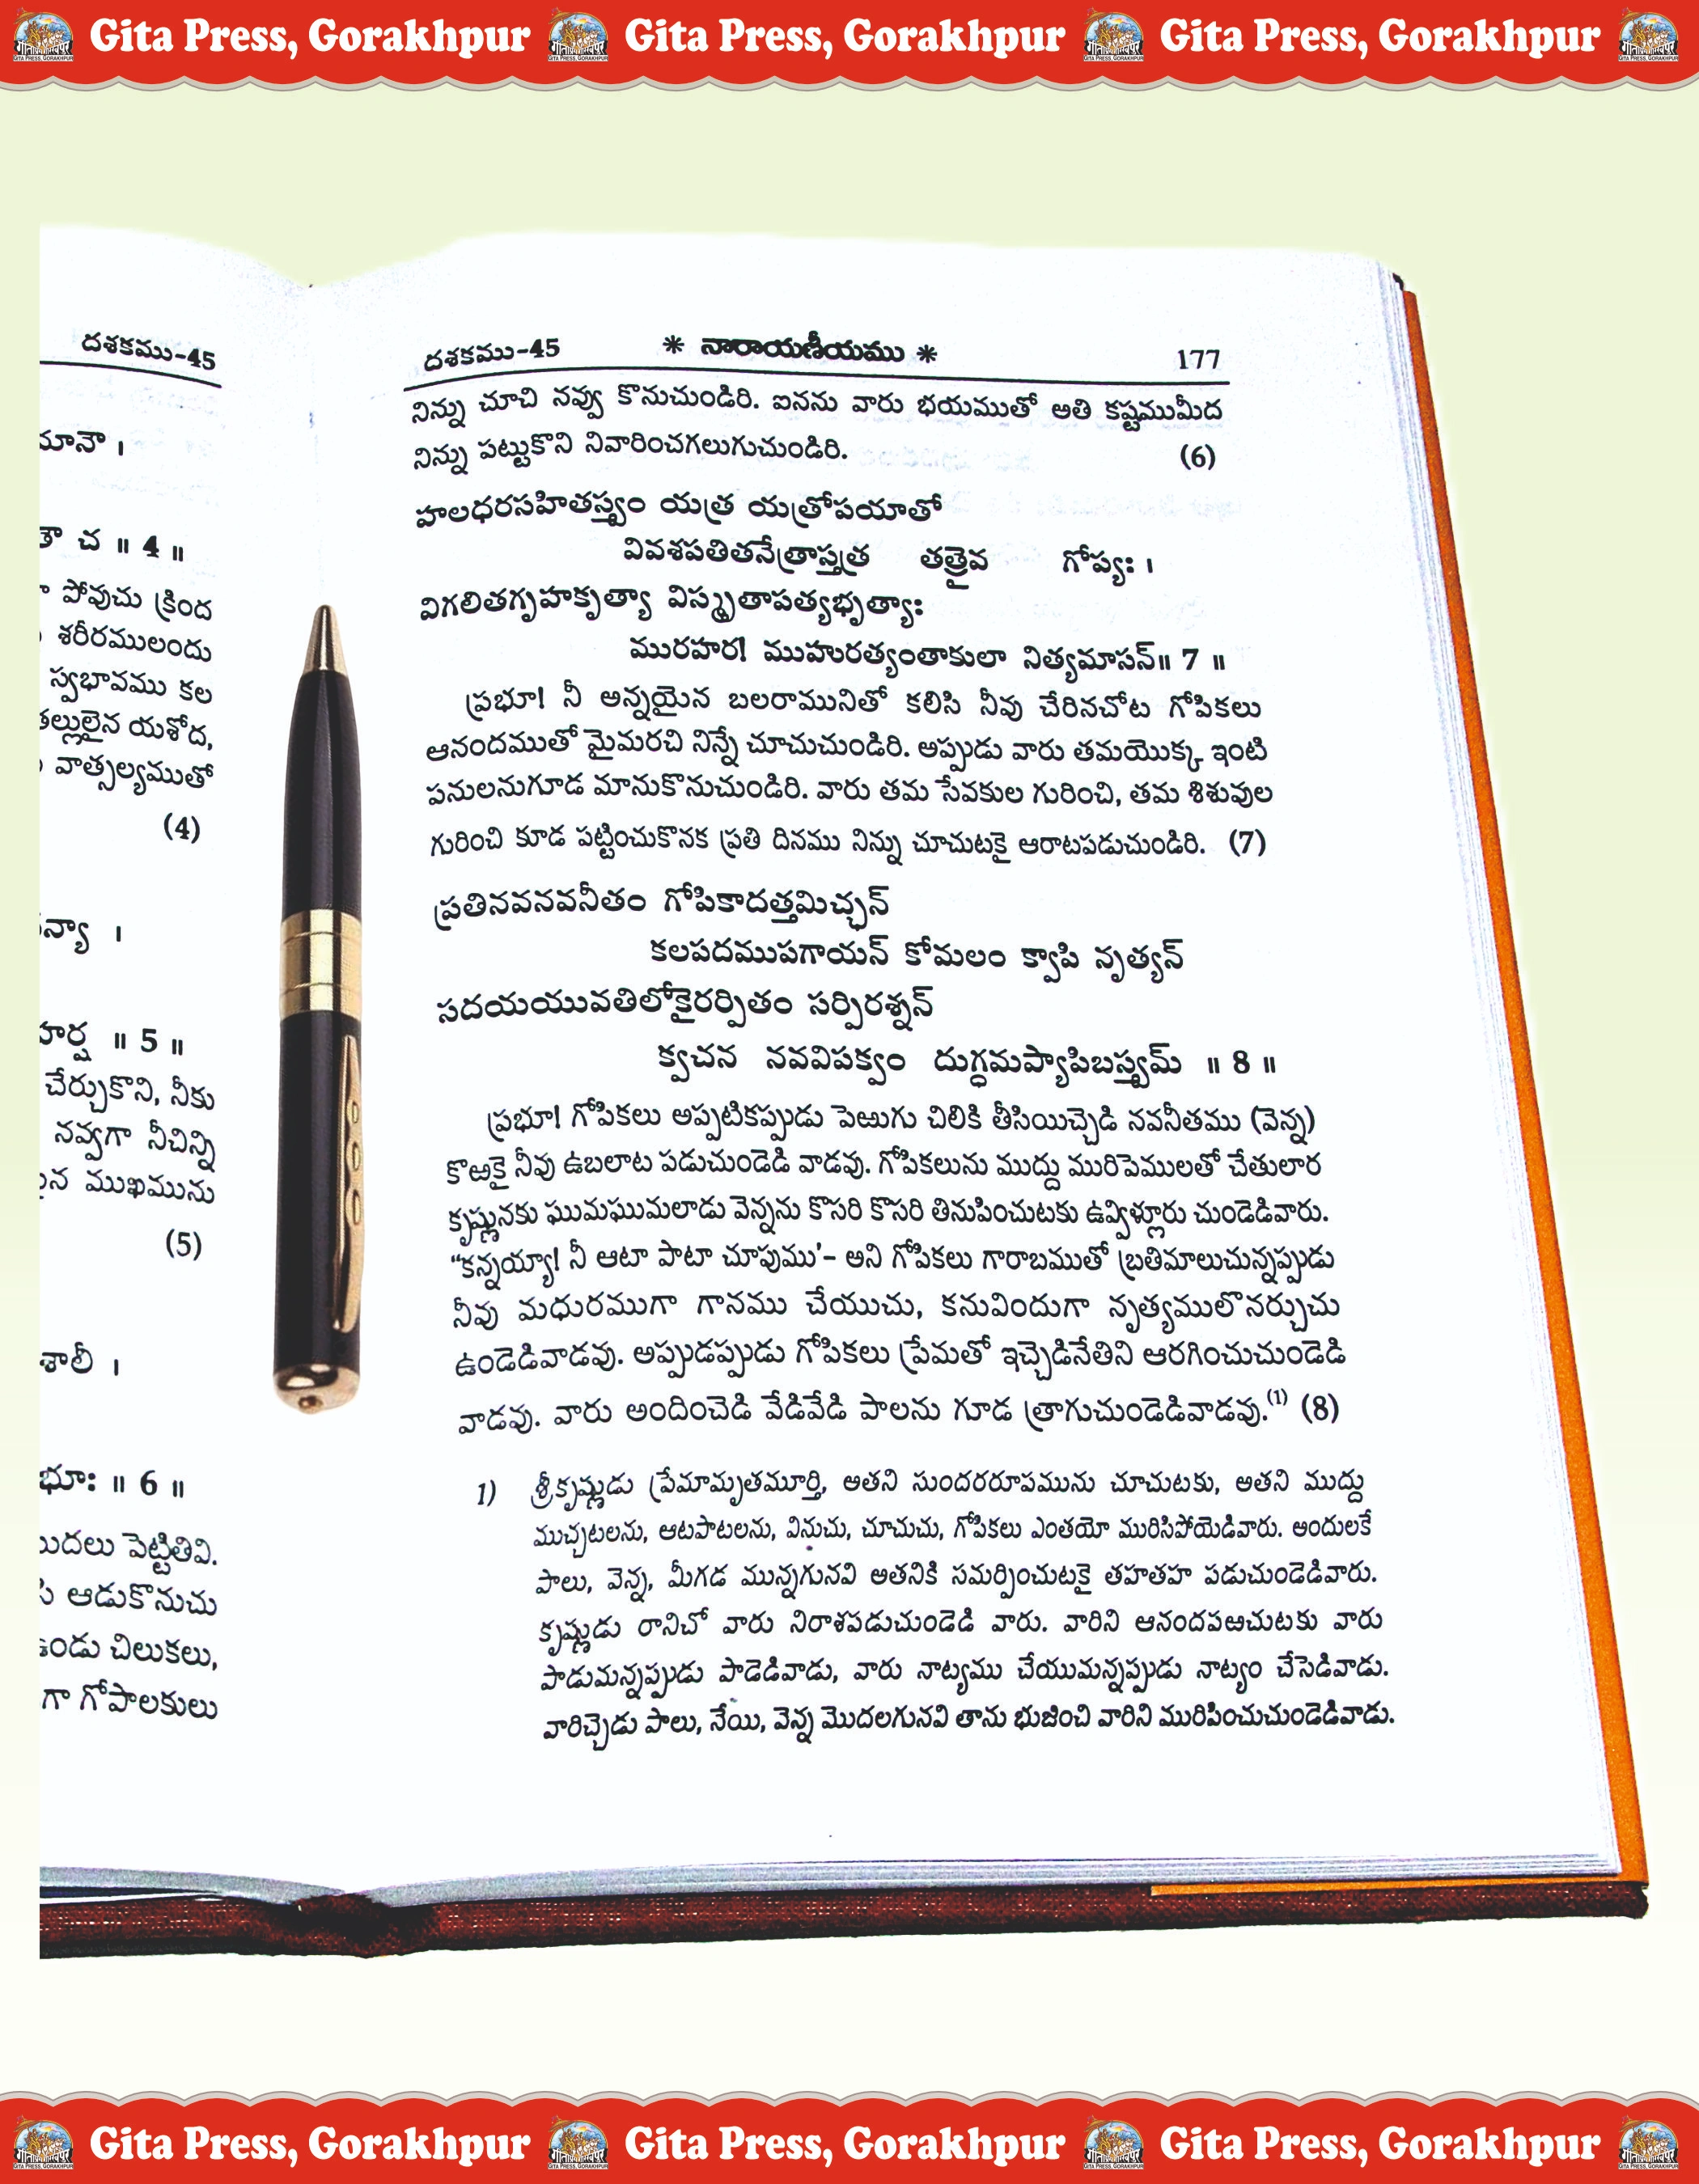 Gita Press, Gorakhpur Gita Press, Gorakhpur Gita Press, Gorakhpur
దశకము-45
చ ॥ 4 ॥
పోవుచు క్రింద
శరీరములందు
స్వభావము కల
తల్లులైన యశోద,
వాత్సల్యముతో
(4)
।
॥ 5 ॥
చేర్చుకొని, నీకు
నవ్వగా నీచిన్ని
ముఖమును
(5)
శాలీ ।
॥ 6 ॥
పెట్టితివి.
ఆడుకొనుచు
చిలుకలు,
గా గోపాలకులు
దశకము-45 * నారాయణీయము * 177
నిన్ను చూచి నవ్వు కొనుచుండిరి. ఐనను వారు భయముతో అతి కష్టముమీద
నిన్ను పట్టుకొని నివారించగలుగుచుండిరి. (6)
హలధరసహితస్త్వం యత్ర యత్రోపయాతో
వివశపతితనేత్రాస్తత్ర తత్రైవ గోప్యః ।
విగలితగృహకృత్యా విస్మృతాపత్యభృత్యాః
మురహర! ముహురత్యంతాకులా నిత్యమాసన్॥ 7 ॥
ప్రభూ! నీ అన్నయైన బలరామునితో కలిసి నీవు చేరినచోట గోపికలు
ఆనందముతో మైమరచి నిన్నే చూచుచుండిరి. అప్పుడు వారు తమయొక్క ఇంటి
పనులనుగూడ మానుకొనుచుండిరి. వారు తమ సేవకుల గురించి, తమ శిశువుల
గురించి కూడ పట్టించుకొనక ప్రతి దినము నిన్ను చూచుటకై ఆరాటపడుచుండిరి. (7)
ప్రతినవనవనీతం గోపికాదత్తమిచ్ఛన్
కలపదముపగాయన్ కోమలం క్వాపి నృత్యన్
సదయయువతిలోకైరర్పితం సర్పిరశ్నన్
క్వచన నవవిపక్వం దుగ్ధమప్యాపిబస్త్వమ్ ॥ 8 ॥
ప్రభూ! గోపికలు అప్పటికప్పుడు పెఱుగు చిలికి తీసియిచ్చెడి నవనీతము (వెన్న)
కొఱకై నీవు ఉబలాట పడుచుండెడి వాడవు. గోపికలును ముద్దు మురిపెములతో చేతులార
కృష్ణునకు ఘుమఘుమలాడు వెన్నను కొసరి కొసరి తినుపించుటకు ఉవ్విళ్లూరు చుండెడివారు.
“కన్నయ్యా! నీ ఆటా పాటా చూపుము’- అని గోపికలు గారాబముతో బ్రతిమాలుచున్నప్పుడు
నీవు మధురముగా గానము చేయుచు, కనువిందుగా నృత్యములొనర్చుచు
ఉండెడివాడవు. అప్పుడప్పుడు గోపికలు ప్రేమతో ఇచ్చెడినేతిని ఆరగించుచుండెడి
వాడవు. వారు అందించెడి వేడివేడి పాలను గూడ త్రాగుచుండెడివాడవు.(1) (8)
1) శ్రీకృష్ణుడు ప్రేమామృతమూర్తి, అతని సుందరరూపమును చూచుటకు, అతని ముద్దు
ముచ్చటలను, ఆటపాటలను, వినుచు, చూచుచు, గోపికలు ఎంతయో మురిసిపోయెడివారు. అందులకే
పాలు, వెన్న, మీగడ మున్నగునవి అతనికి సమర్పించుటకై తహతహ పడుచుండెడివారు.
కృష్ణుడు రానిచో వారు నిరాశపడుచుండెడి వారు. వారిని ఆనందపఱచుటకు వారు
పాడుమన్నప్పుడు పాడెడివాడు, వారు నాట్యము చేయుమన్నప్పుడు నాట్యం చేసెడివాడు.
వారిచ్చెడు పాలు, నేయి, వెన్న మొదలగునవి తాను భుజించి వారిని మురిపించుచుండెడివాడు.
Gita Press, Gorakhpur Gita Press, Gorakhpur Gita Press, Gorakhpur